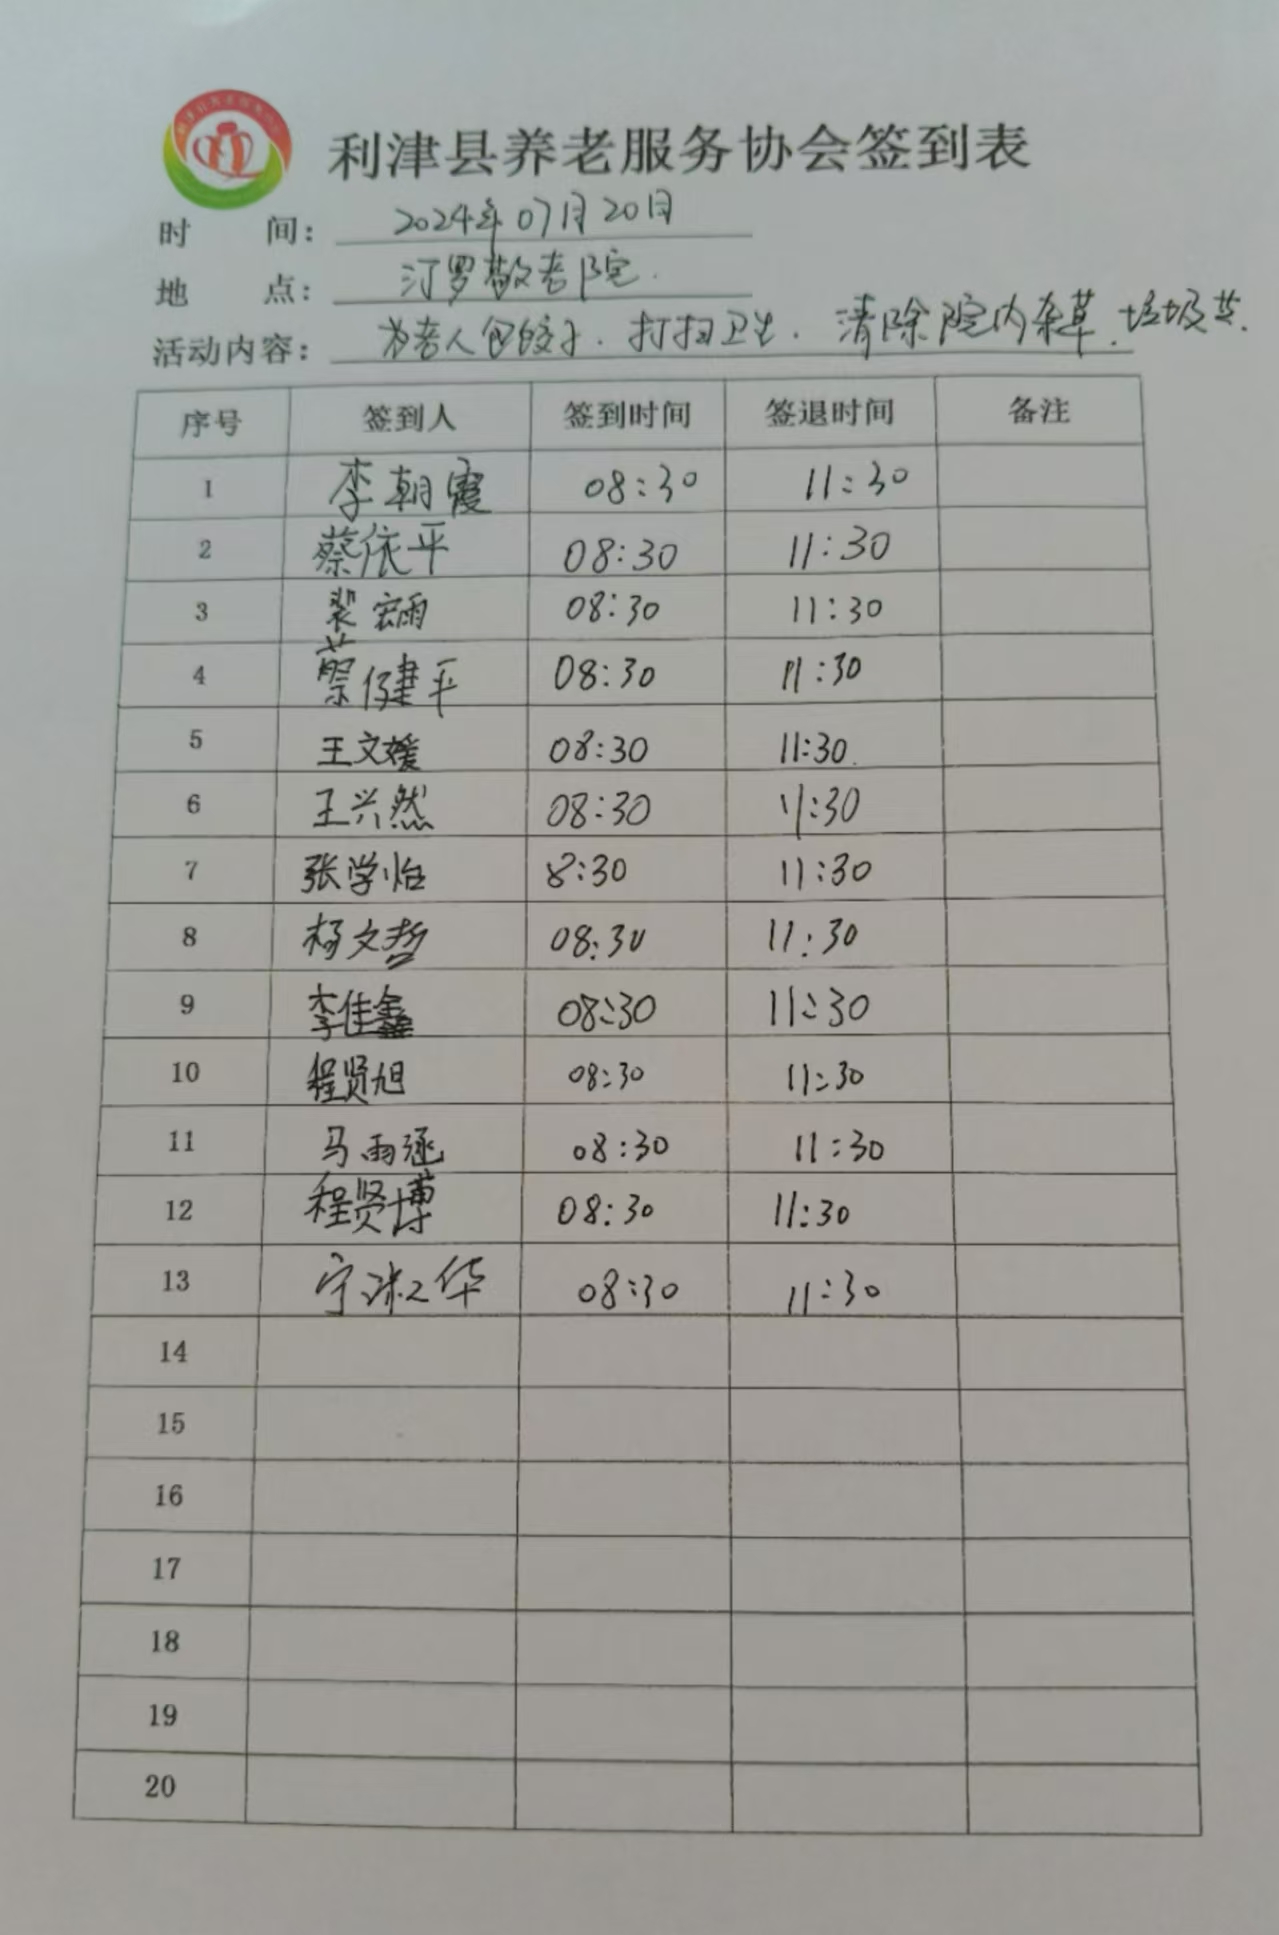 利津县养老服务协会签到表
时 间： 2024年07月20日
地 点： 汀罗敬老院.
活动内容： 为老人包饺子. 打扫卫生. 清除院内杂草. 垃圾等.
序号 签到人 签到时间 签退时间 备注
1 李朝霞 08:30 11:30
2 蔡依平 08:30 11:30
3 裴宏雨 08:30 11:30
4 蔡健平 08:30 11:30
5 王文媛 08:30 11:30.
6 王兴然 08:30 11:30
7 张学怡 8:30 11:30
8 杨文哲 08:30 11:30
9 李佳鑫 08:30 11:30
10 程贤旭 08:30 11:30
11 马雨涵 08:30 11:30
12 程贤博 08:30 11:30
13 宁淑华 08:30 11:30
14
15
16
17
18
19
20